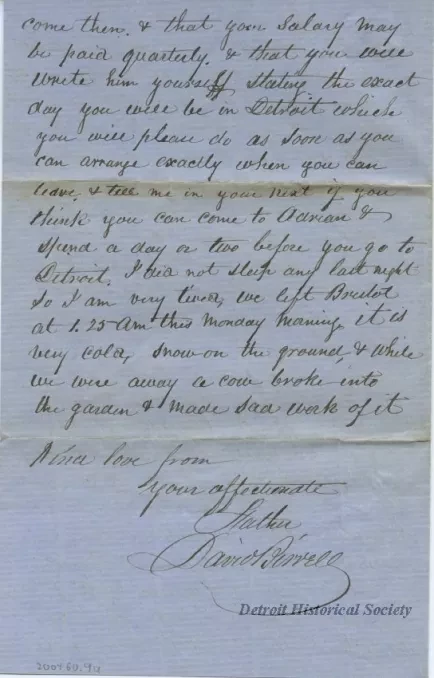 come then, & that your Salary may
be paid quarterly, & that you will
write him yourself stating the exact
day you will be in Detroit which
you will please do as soon as you
can arrange exactly when you can
leave, & tell me in your next if you
think you can come to Adrian &
spend a day or two before you go to
Detroit. I did not sleep any last night
So I am very tired, we left Bristol
at 1.25 Am this Monday morning it is
very cold, snow on the ground, & while
we were away a cow broke into
the garden & made sad work of it
Kind love from
your affectionate
Father
David Birrell
Detroit Historical Society
2007.60.94